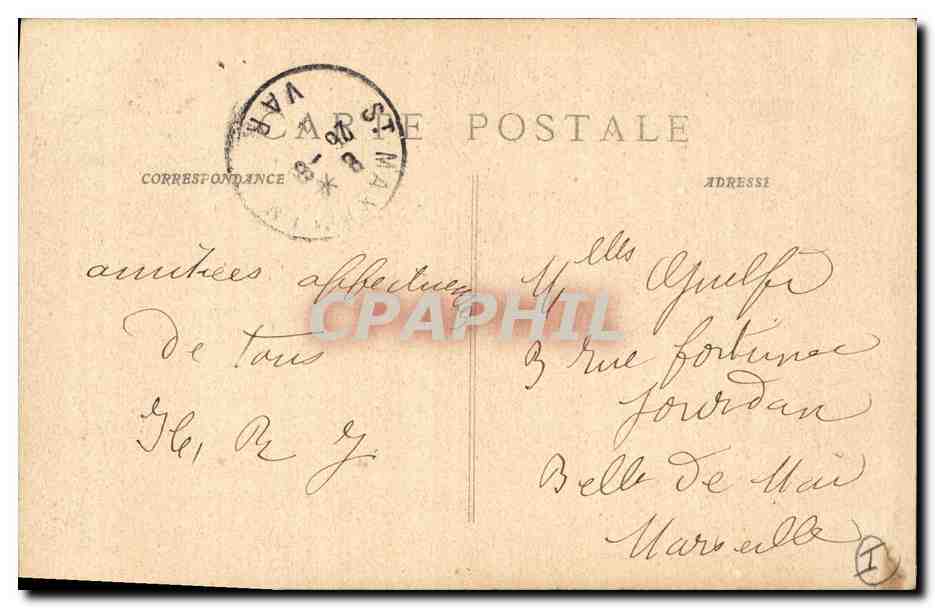 CARTE POSTALE
ST. MAX
VAR
CORRESPONDANCE
ADRESSE
amitiées affectueuses
de tous
R J
Melles Guelfi
3 rue fortunée
Jourdan
Belle de Mai
Marseille
I
CPAPHIL